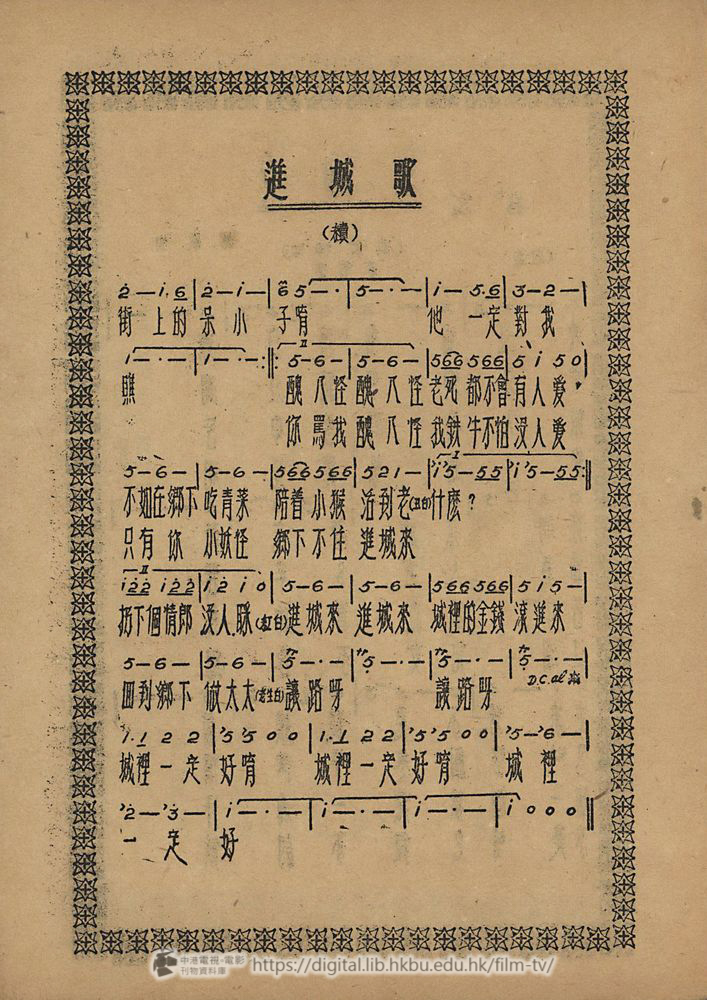 進城歌
(續)
2 — i. 6 | 2 — i — | 6 5 — · | 5 — · — | i — 5.6 | 3 — 2 — |
街上的呆小子唷 他一定對我
1 — · — | 1 — · — :‖: 5 — 6 — | 5 — 6 — | 566 566 | 5 i 5 0 |
II
醜八怪醜八怪老死都不會有人愛
你罵我醜八怪我鉄牛不怕沒人愛
I
5 — 6 — | 5 — 6 — | 566 566 | 5 2 1 — | i 5 — 55 | i 5 — 55 :‖
不如在鄉下吃青菜陪着小猴活到老(丑白)什麽?
只有你小妖怪鄉下不住進城來
II
i22 i22 | i 2 i 0 | 5 — 6 — | 5 — 6 — | 566 566 | 5 i 5 — |
扔下個情郎沒人睬 進城來進城來城裡的金錢滾進來
5 — 6 — | 5 — 6 — | 5 — · — | 5 — · — | 5 — · — | 5 — · — |
D.C. al
回到鄉下做太太(老生白)讓路呀 讓路呀
1. 1 2 2 | 5 5 0 0 | 1. 1 2 2 | 5 5 0 0 | 5 — 6 — |
城裡一定好唷 城裡一定好唷 城裡
2 — 3 — | i — · — | i — · — | i — · — | i 0 0 0 ‖
一定好
中港電視·電影
刊物資料庫
https://digital.lib.hkbu.edu.hk/film-tv/